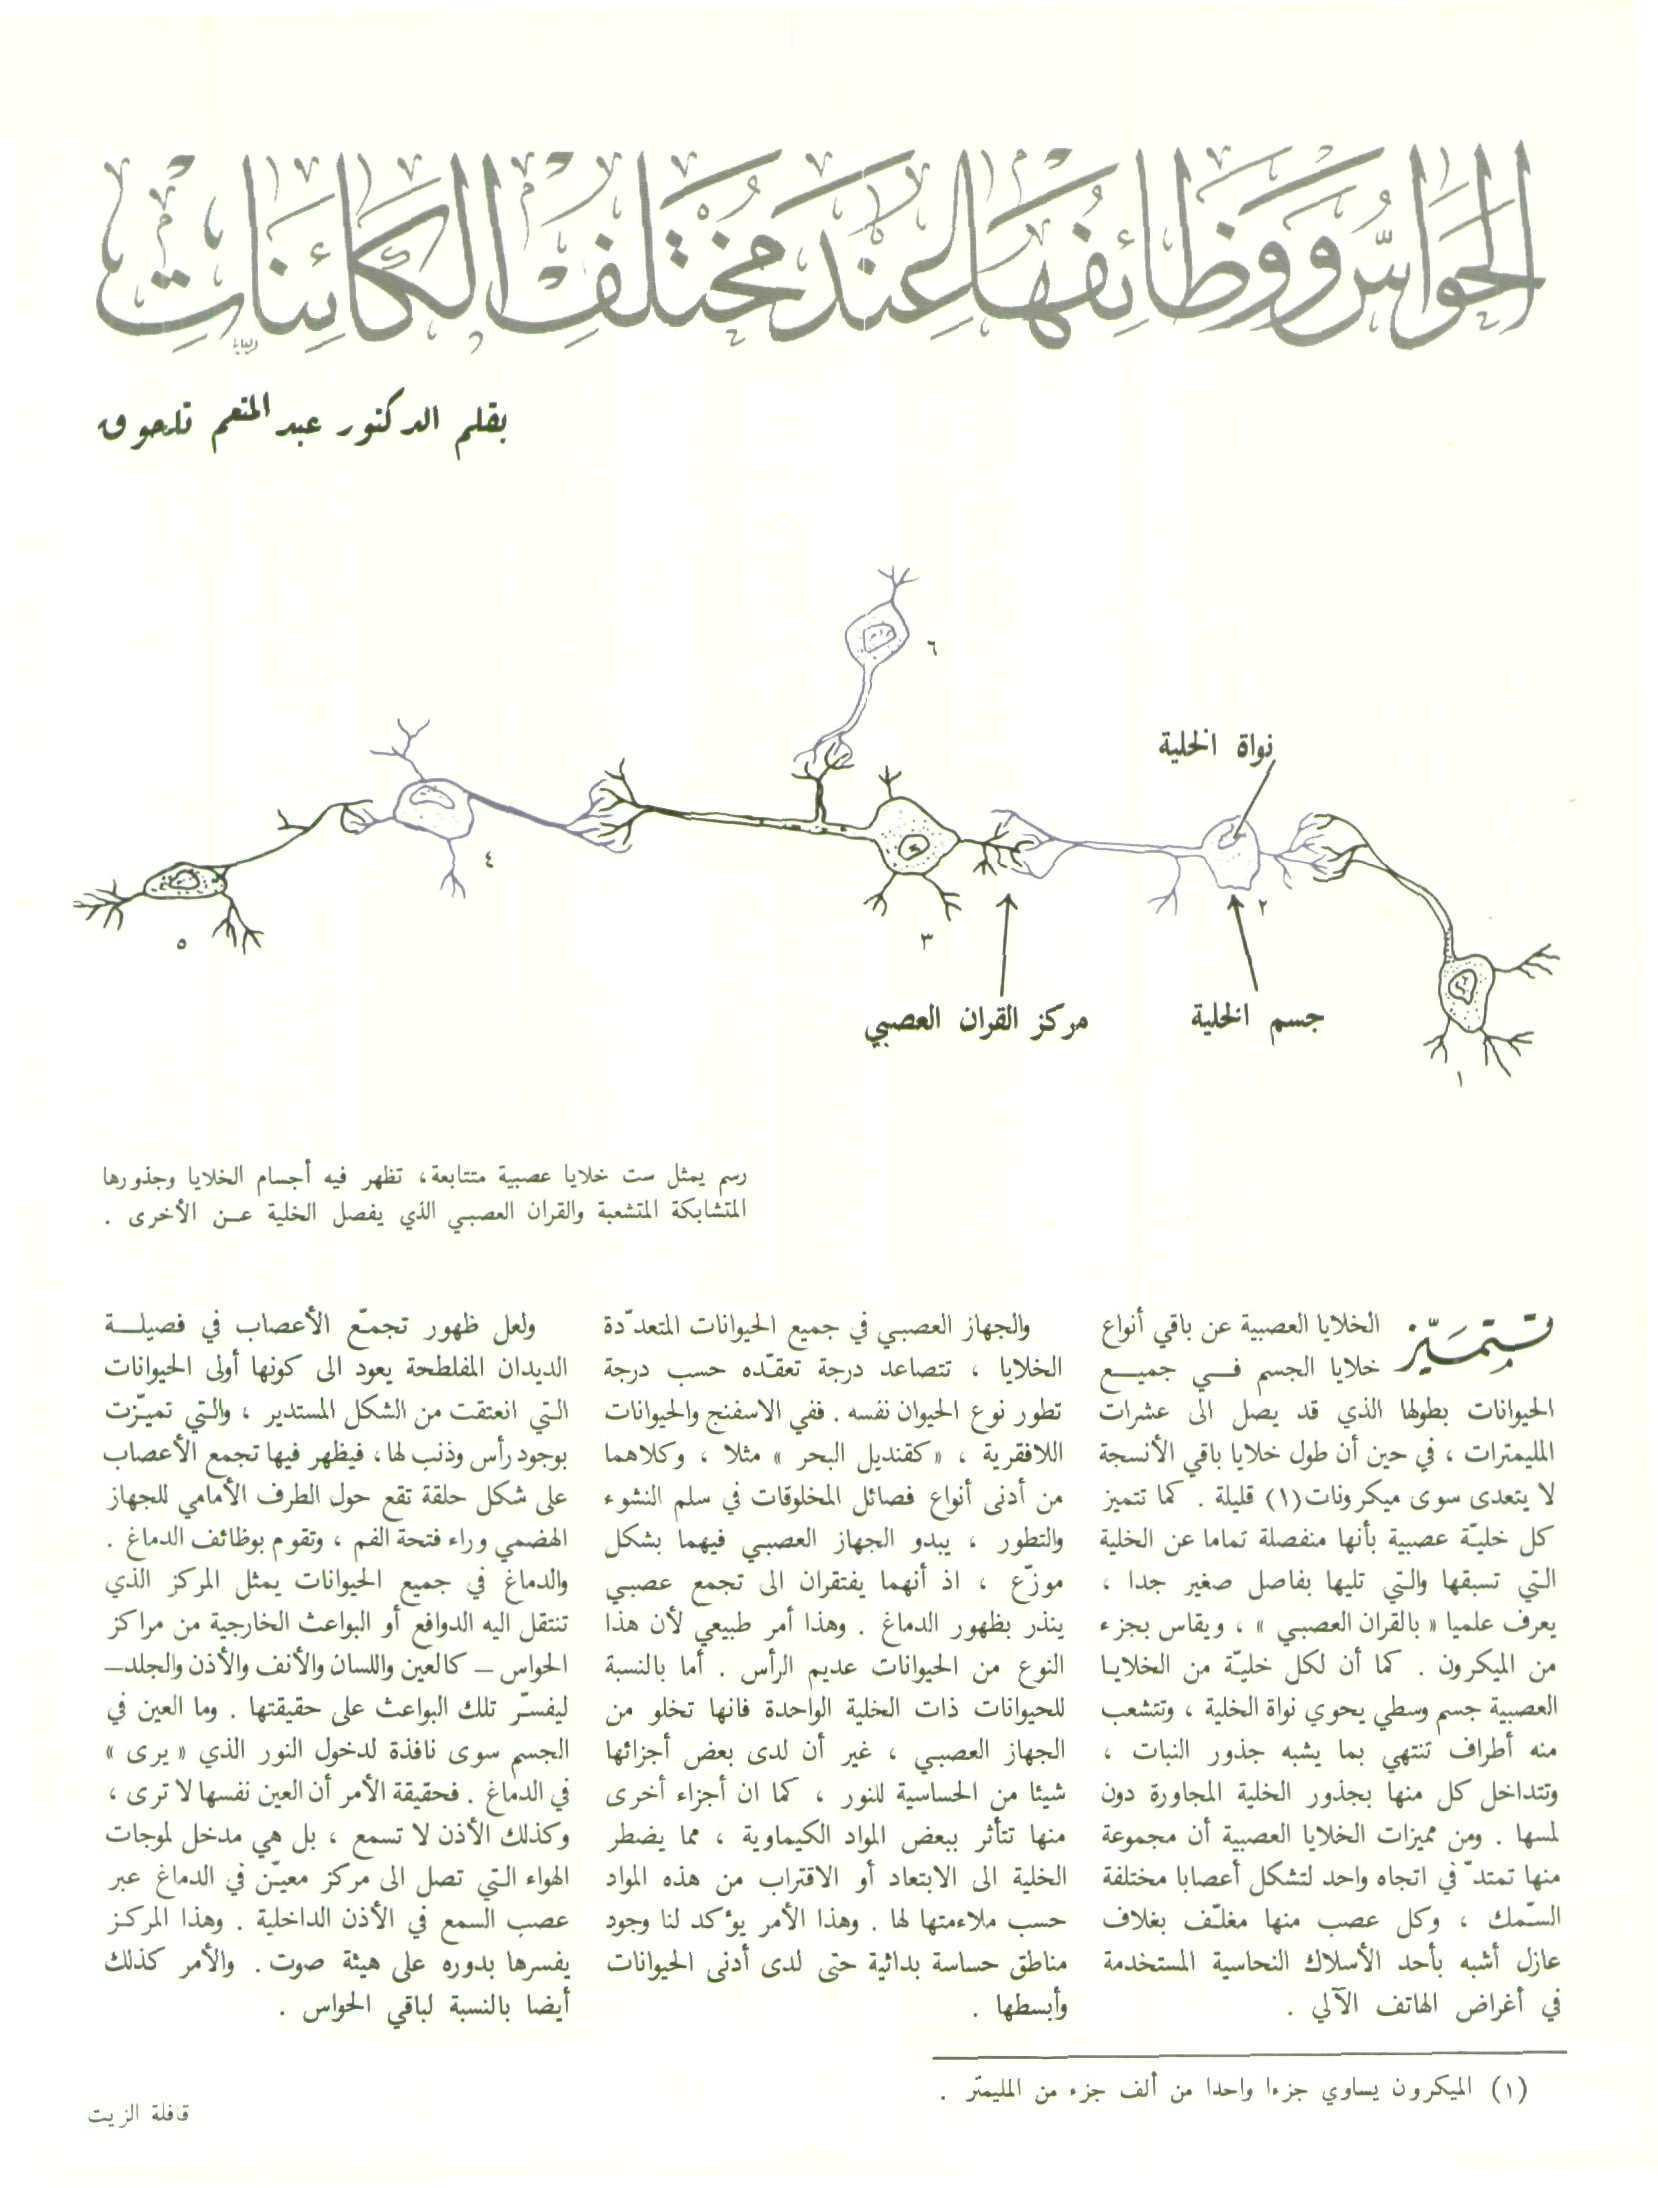 الحَوَاسُّ وَوَظَائِفُهَا عِنْدَ مُخْتَلِفِ الكَائِنَاتِ
بقلم الدكتور عبد المنعم تلحوق
٦
نواة الخلية
٤
٢
٥
٣
مركز القران العصبي
جسم الخلية
١
رسم يمثل ست خلايا عصبية متتابعة، تظهر فيه أجسام الخلايا وجذورها
المتشابكة المتشعبة والقران العصبي الذي يفصل الخلية عن الأخرى .
تتمَيّز الخلايا العصبية عن باقي أنواع
خلايا الجسم في جميع
الحيوانات بطولها الذي قد يصل الى عشرات
المليمترات ، في حين أن طول خلايا باقي الأنسجة
لا يتعدى سوى ميكرونات(١) قليلة . كما تتميز
كل خليّة عصبية بأنها منفصلة تماما عن الخلية
التي تسبقها والتي تليها بفاصل صغير جدا ،
يعرف علميا « بالقران العصبي » ، ويقاس بجزء
من الميكرون . كما أن لكل خليّة من الخلايا
العصبية جسم وسطي يحوي نواة الخلية ، وتتشعب
منه أطراف تنتهي بما يشبه جذور النبات ،
وتتداخل كل منها بجذور الخلية المجاورة دون
لمسها . ومن مميزات الخلايا العصبية أن مجموعة
منها تمتدّ في اتجاه واحد لتشكل أعصابا مختلفة
السّمك ، وكل عصب منها مغلّف بغلاف
عازل أشبه بأحد الأسلاك النحاسية المستخدمة
في أغراض الهاتف الآلي .
والجهاز العصبي في جميع الحيوانات المتعدّدة
الخلايا ، تتصاعد درجة تعقّده حسب درجة
تطور نوع الحيوان نفسه . ففي الاسفنج والحيوانات
اللافقرية ، «كقنديل البحر » مثلا ، وكلاهما
من أدنى أنواع فصائل المخلوقات في سلم النشوء
والتطور ، يبدو الجهاز العصبي فيهما بشكل
موزّع ، اذ أنهما يفتقران الى تجمع عصبي
ينذر بظهور الدماغ . وهذا أمر طبيعي لأن هذا
النوع من الحيوانات عديم الرأس . أما بالنسبة
للحيوانات ذات الخلية الواحدة فانها تخلو من
الجهاز العصبي ، غير أن لدى بعض أجزائها
شيئا من الحساسية للنور ، كما ان أجزاء أخرى
منها تتأثر ببعض المواد الكيماوية ، مما يضطر
الخلية الى الابتعاد أو الاقتراب من هذه المواد
حسب ملاءمتها لها . وهذا الأمر يؤكد لنا وجود
مناطق حساسة بدائية حتى لدى أدنى الحيوانات
وأبسطها .
ولعل ظهور تجمّع الأعصاب في فصيلة
الديدان المفلطحة يعود الى كونها أولى الحيوانات
التي انعتقت من الشكل المستدير ، والتي تميّزت
بوجود رأس وذنب لها، فيظهر فيها تجمع الأعصاب
على شكل حلقة تقع حول الطرف الأمامي للجهاز
الهضمي وراء فتحة الفم ، وتقوم بوظائف الدماغ .
والدماغ في جميع الحيوانات يمثل المركز الذي
تنتقل اليه الدوافع أو البواعث الخارجية من مراكز
الحواس – كالعين واللسان والأنف والأذن والجلد–
ليفسّر تلك البواعث على حقيقتها . وما العين في
الجسم سوى نافذة لدخول النور الذي « يرى »
في الدماغ . فحقيقة الأمر أن العين نفسها لا ترى ،
وكذلك الأذن لا تسمع ، بل هي مدخل لموجات
الهواء التي تصل الى مركز معيّن في الدماغ عبر
عصب السمع في الأذن الداخلية . وهذا المركز
يفسرها بدوره على هيئة صوت. والأمر كذلك
أيضا بالنسبة لباقي الحواس .
(١) الميكرون يساوي جزءا واحدا من ألف جزء من المليمتر .
قافلة الزيت